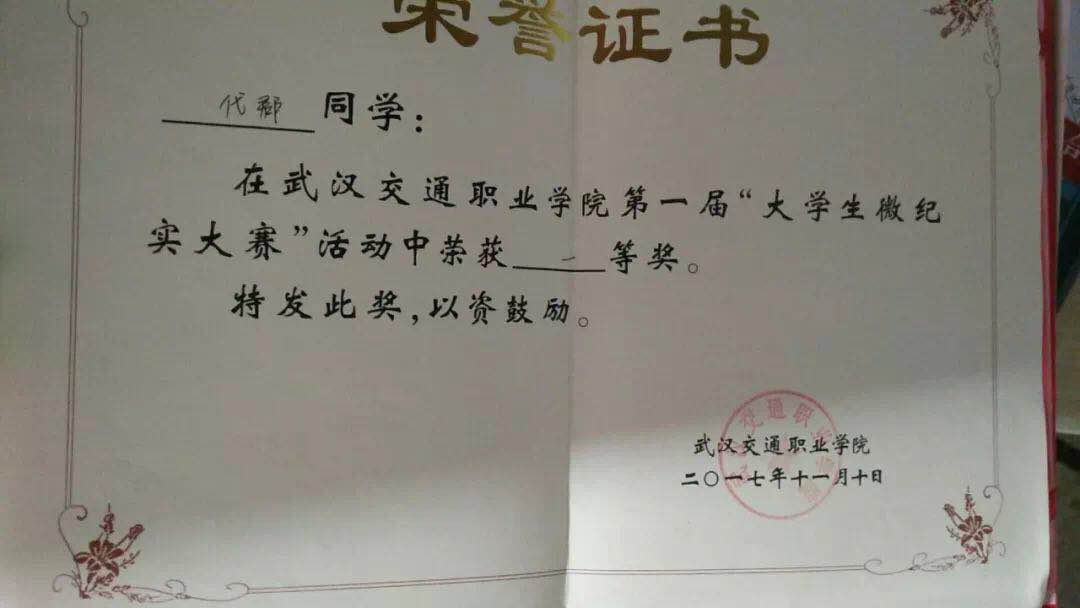 荣誉证书
代郡 同学:
在武汉交通职业学院第一届“大学生微纪
实大赛”活动中荣获 一 等奖。
特发此奖,以资鼓励。
武汉交通职业学院
二〇一七年十一月十日